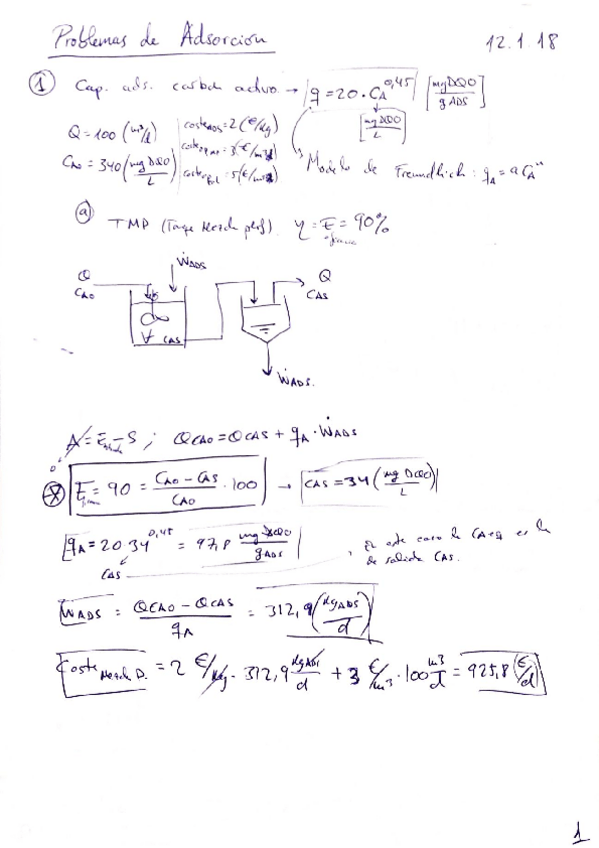 Problemas de Adsorción
12.1.18
① Cap. ads. carbón activo → q = 20 · C_A^0,45 [mg DQO / g ADS]
[mg DQO / L]
Q = 100 (m³/d)
coste ADS = 2 (€/kg)
C_A0 = 340 (mg DQO / L)
Modelo de Freundlich: q_A = a C_A^n
ⓐ TMP (Tanque Mezcla perf). η = E = 90%
Q
C_A0
W_ADS
∀ C_AS
Q
C_AS
W_ADS.
A = E - S ; Q C_A0 = Q C_AS + q_A · W_ADS
E = 90 = (C_A0 - C_AS) / C_A0 · 100 → C_AS = 34 (mg DQO / L)
q_A = 20 34^0,45 = 97,8 mg DQO / g ADS
C_AS
, En este caso la C_Aeq es la
de salida C_AS.
W_ADS = (Q C_A0 - Q C_AS) / q_A = 312,9 (kg ADS / d)
Coste Mezcla D. = 2 €/kg · 312,9 kg ADS / d + 3 €/m³ · 100 m³/d = 925,8 (€/d)
1